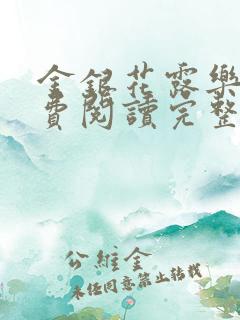 金銀花露樂
費閱讀完整
公維金
未經同意禁止轉載